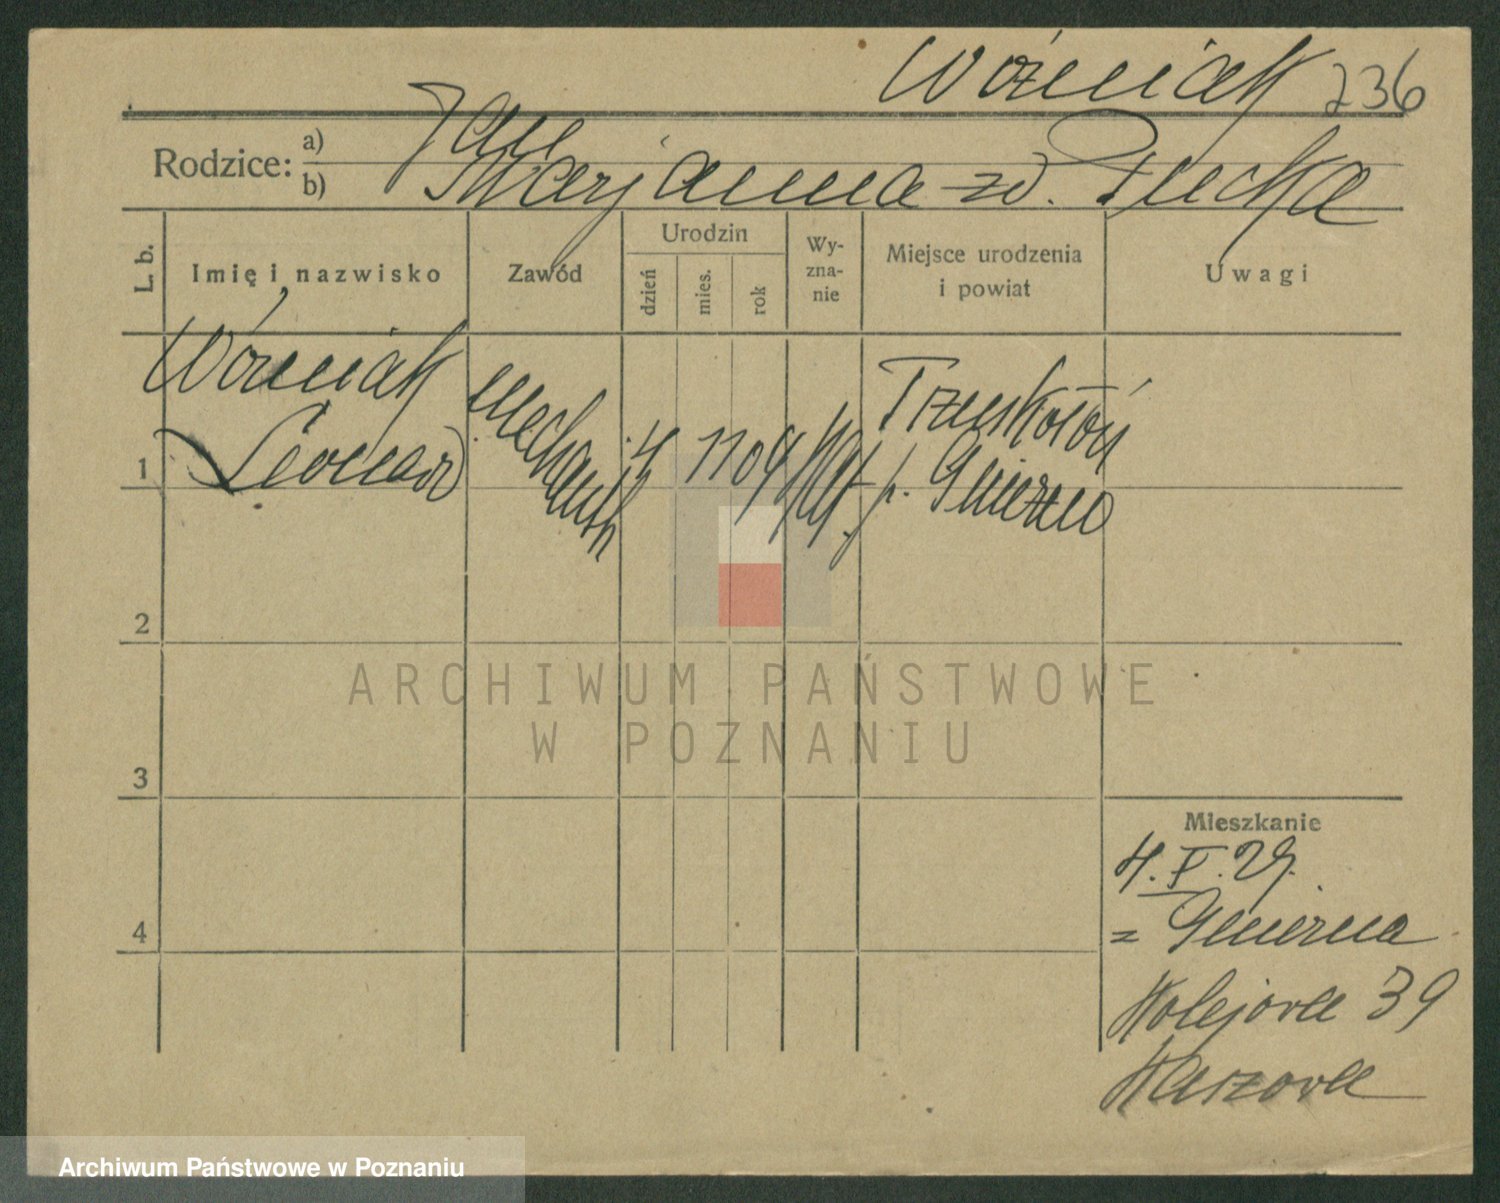 Woźniak 736
Rodzice: a) Jan
b) Marjanna zd.
L. b. Imię i nazwisko Zawód Urodzin dzień mies. rok Wyznanie Miejsce urodzenia i powiat Uwagi
Woźniak mechanik Trzuskołoń
1 Leonard 4 11 04 kat. p. Gniezno
2
3
Mieszkanie
4. V. 29.
4 z Gniezna
Kolejowa 39
ARCHIWUM PAŃSTWOWE
W POZNANIU
Archiwum Państwowe w Poznaniu